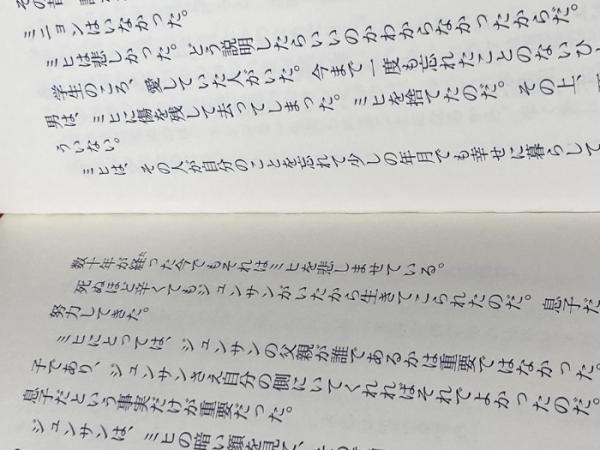 ミニョンはいなかった。
ミヒは悲しかった。どう説明したらいいのかわからなかったからだ。
学生のころ、愛していた人がいた。今まで一度も忘れたことのないひ
男は、ミヒに傷を残して去ってしまった。ミヒを捨てたのだ。その上、
ういない。
ミヒは、その人が自分のことを忘れて少しの年月でも幸せに暮らして
数十年が経った今でもそれはミヒを悲しませている。
死ぬほど辛くてもジュンサンがいたから生きてこられたのだ。息子だ
努力してきた。
ミヒにとっては、ジュンサンの父親が誰であるかは重要ではなかった。
子であり、ジュンサンさえ自分の側にいてくれればそれでよかったのだ。
息子だという事実だけが重要だった。
ジュンサンは、ミヒの暗い顔を見て、